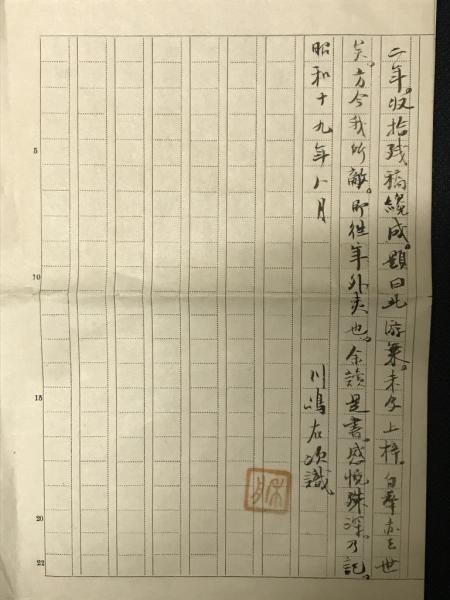 二年。收拾残稿纔成。題曰北游集。未及上梓。白摩亦去世
矣。方今我所敵。即往年外夷也。余讀是書。感慨殊深。乃記。
昭和十九年八月
川嶋右次識
5
10
15
20
22